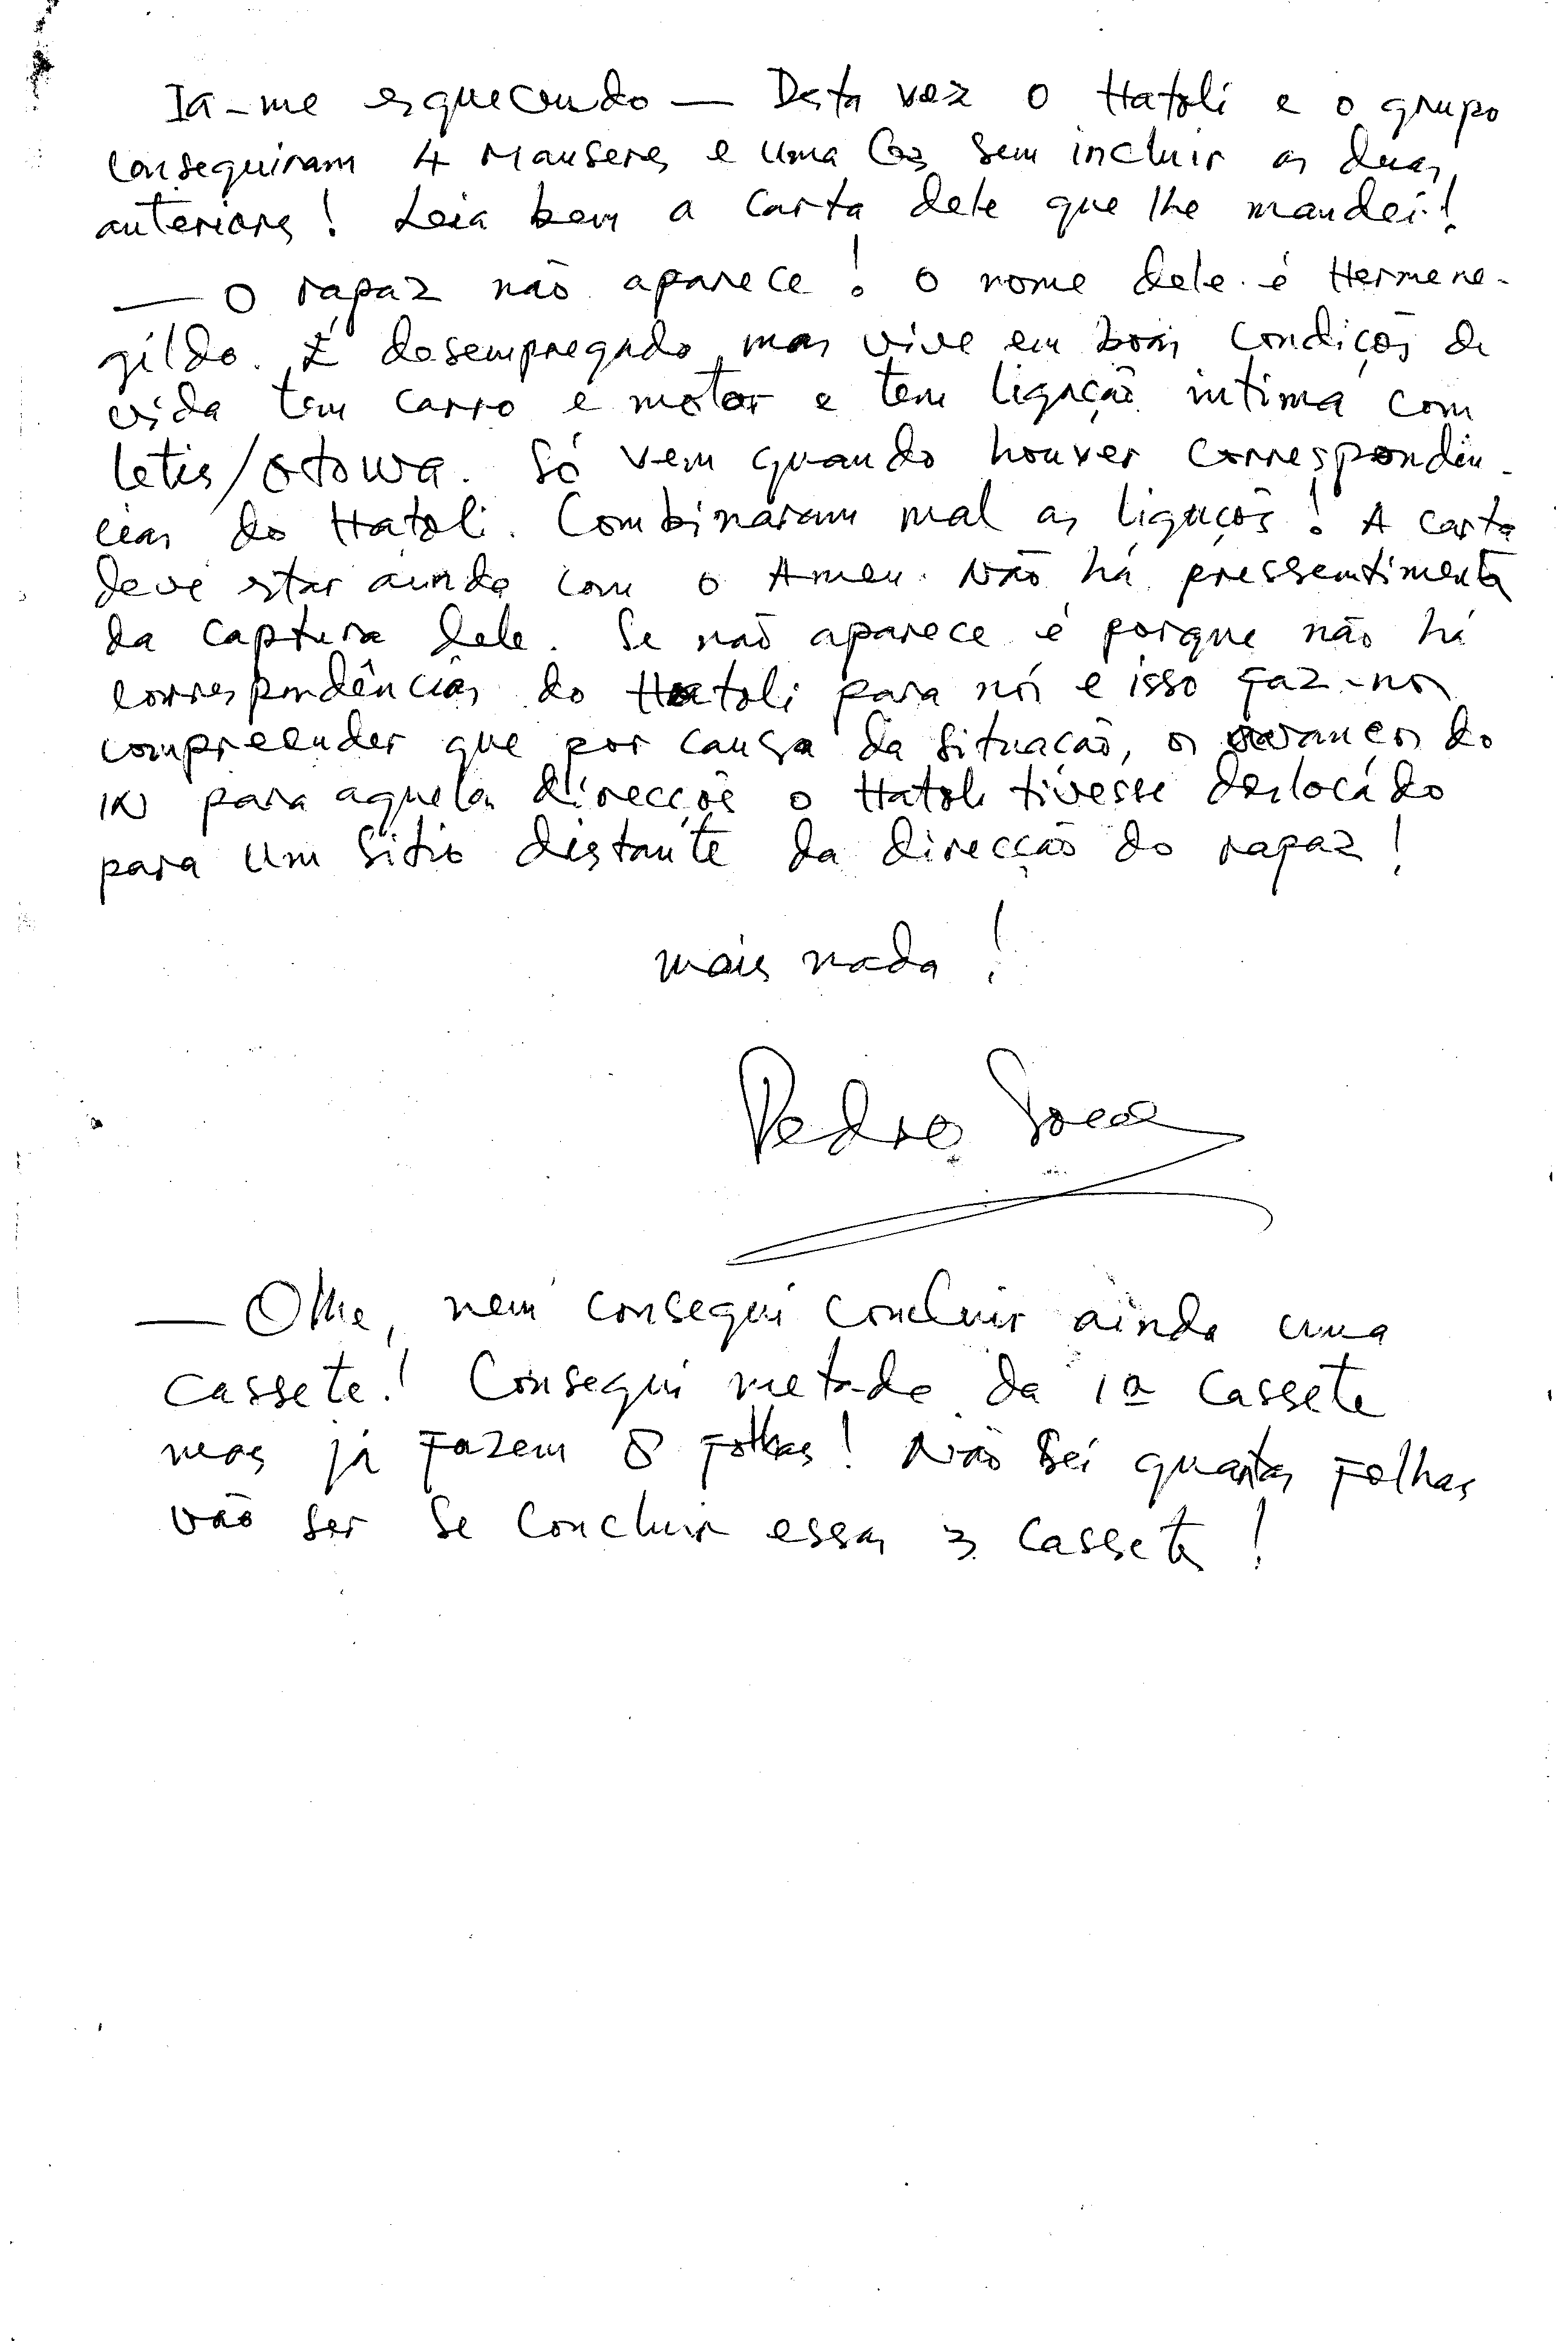 Ia-me esquecendo — Desta vez o Hatoli e o grupo
conseguiram 4 Mauseres e uma G3 sem incluir as duas
anteriores! Leia bem a carta dele que lhe mandei!
— O rapaz não aparece! O nome dele é Hermene-
gildo. É desempregado mas vive em boas condições de
vida tem carro e motor e tem ligação íntima com
Letis/Otowa. Só vem quando houver correspondên-
cias do Hatoli. Combinaram mal as ligações! A carta
deve estar ainda com o Ameu. Não há pressentimento
da captura dele. Se não aparece é porque não há
correspondências do Hatoli para nós e isso faz-nos
compreender que por causa da situação, os avanços do
IN para aquela direcção o Hatoli tivesse deslocado
para um sitio distante da direcção do rapaz!
mais nada!
Pedro
— Olhe, nem consegui concluir ainda uma
cassete! Consegui metade da 1ª cassete
mas já fazem 8 folhas! Não sei quantas folhas
vão ser se concluir essas 3 cassetes!